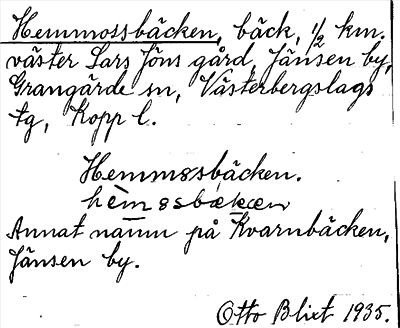 Hemmossbäcken, bäck, 1/2 km.
väster Lars Jöns gård, Jänsen by,
Grangärde sn, Västerbergslags
tg, Kopp l.
Hemmøssbäcken.
hèmøsbækæn
Annat namn på Kvarnbäcken,
Jänsen by.
Otto Blixt 1935.